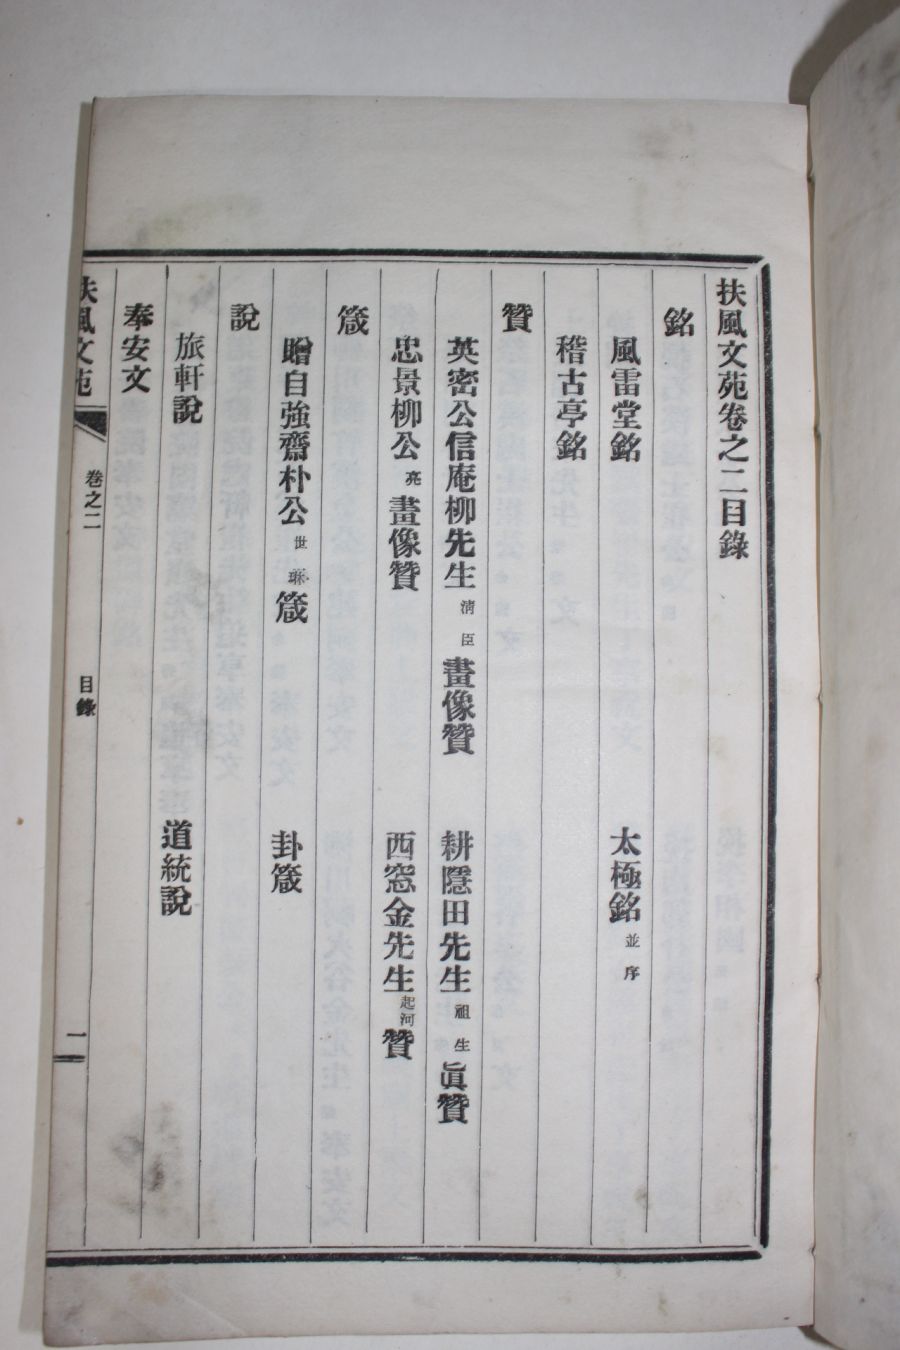 扶風文苑卷之二目錄
銘
風雷堂銘 太極銘 並序
稽古亭銘
贊
英密公信庵柳先生 淸臣 畫像贊 耕隱田先生 祖生 眞贊
忠景柳公 亮 畫像贊 西窓金先生 起河 贊
箴
贈自強齋朴公 世琳 箴 卦箴
說
旅軒說 道統說
奉安文
扶風文苑 卷之二 目錄 一